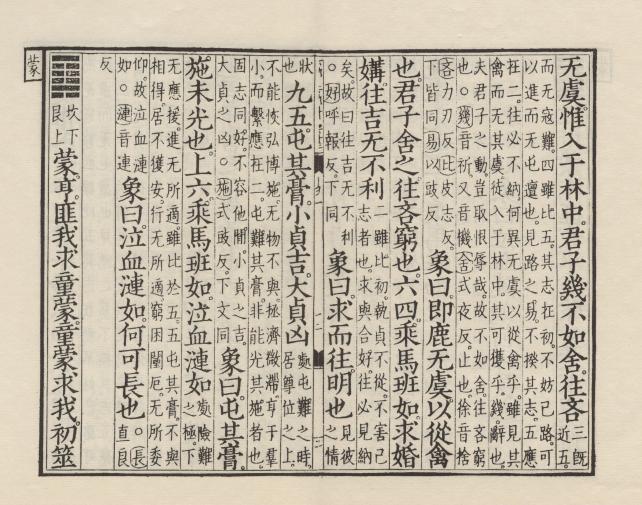 无虞惟入于林中君子幾不如舍往吝三既近五
而无寇難四雖比五其志在初不妨己路可
以進而无屯邅也見路之易不揆其志五應
在二往必不納何異无虞以從禽乎雖見其
禽而无其虞徒入于林中其可獲乎幾辭也
夫君子之動豈取恨辱哉故不如舍往吝窮
也○幾音祈又音機舍式夜反止也徐音捨
吝力刃反比皮志反
下皆同易以豉反
象曰即鹿无虞以從禽
也君子舍之往吝窮也六四乘馬班如求婚
媾往吉无不利
二雖比初執貞不從不害己
志者也求與合好往必見納
矣故曰往吉无不利
○好呼報反下同
象曰求而往明也見彼之情
狀也九五屯其膏小貞吉大貞凶
處屯難之時
居尊位之上
不能恢弘博施无物不與拯濟微滯亨于羣
小而繫應在二屯難其膏非能光其施者也
固志同好不容他間小貞之吉
大貞之凶○施式豉反下文同
象曰屯其膏
施未光也上六乘馬班如泣血漣如處險難之極下
无應援進无所適雖比於五五屯其膏不與
相得居不獲安行无所適窮困闉厄无所委
仰故泣血漣
如○漣音連
象曰泣血漣如何可長也○長直良
反
䷃坎下艮上蒙亨匪我求童蒙童蒙求我初筮
蒙